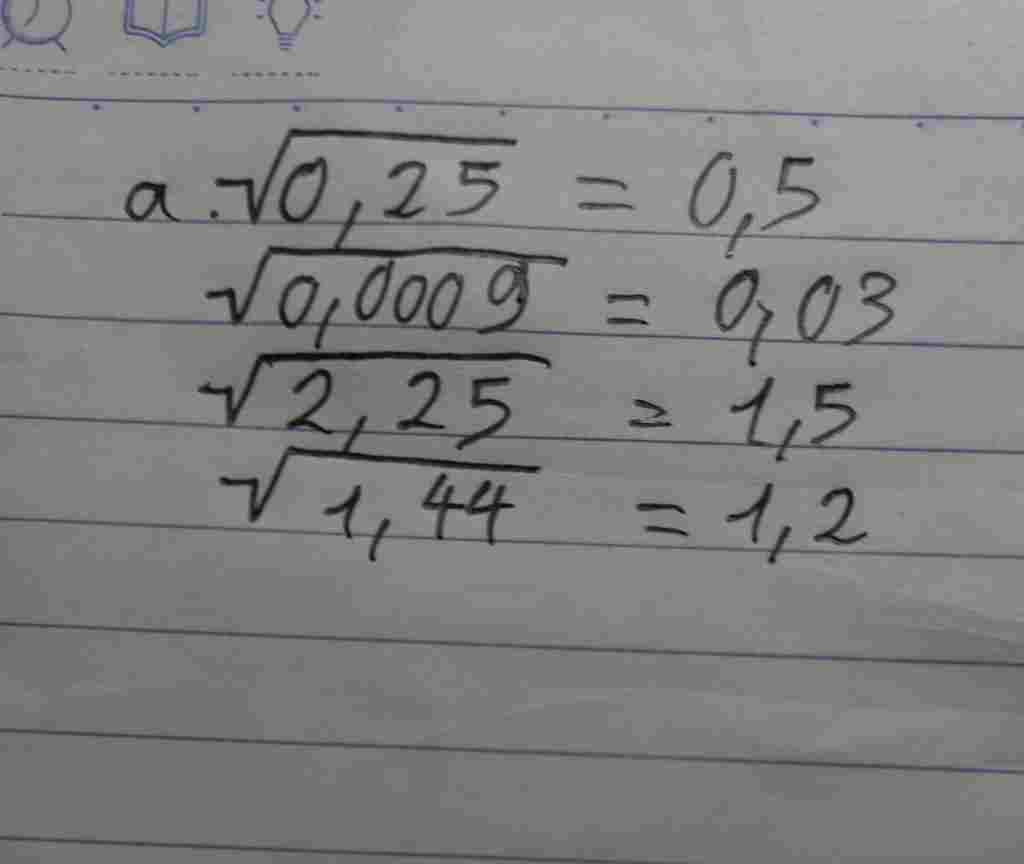 a. √0,25 = 0,5
√0,0009 = 0,03
√2,25 = 1,5
√1,44 = 1,2